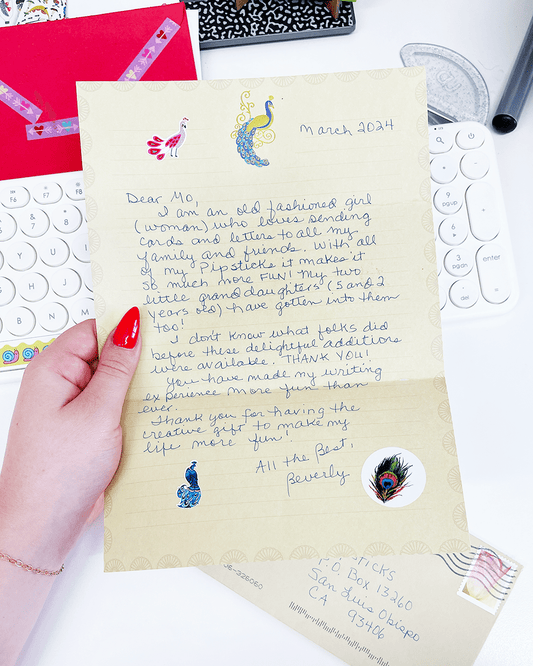 March 2024
Dear Mo,
I am an old fashioned girl
(woman) who loves sending
cards and letters to all my
family and friends. With all
of my Pipsticks it makes it
so much more FUN! My two
little granddaughters (5 and 2
years old) have gotten into them
too!
I don't know what folks did
before these delightful additions
were available. THANK YOU!
You have made my writing
experience more fun than
ever.
Thank you for having the
creative gift to make my
life more fun!
All the Best,
Beverly
STICKS
P.O. Box 13260
San Luis Obispo
CA 93406